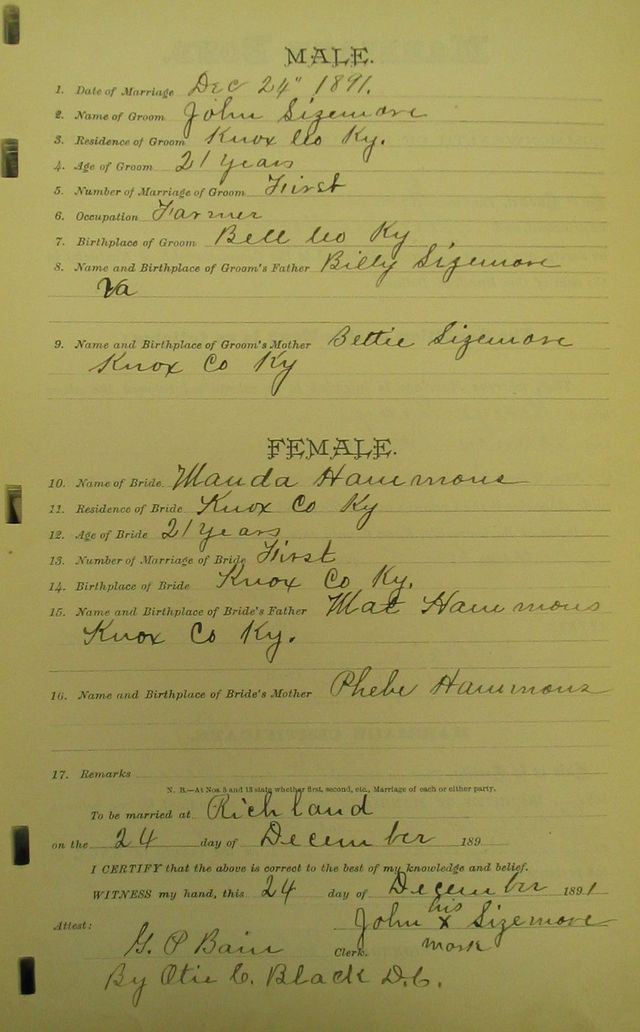 MALE.
1. Date of Marriage Dec 24" 1891.
2. Name of Groom John Sizemore
3. Residence of Groom Knox Co Ky.
4. Age of Groom 21 years
5. Number of Marriage of Groom First
6. Occupation Farmer
7. Birthplace of Groom Bell Co Ky
8. Name and Birthplace of Groom's Father Billy Sizemore
Va
9. Name and Birthplace of Groom's Mother Bettie Sizemore
Knox Co Ky
FEMALE.
10. Name of Bride. Manda Hammons
11. Residence of Bride Knox Co Ky
12. Age of Bride 21 years
13. Number of Marriage of Bride First
14. Birthplace of Bride Knox Co Ky.
15. Name and Birthplace of Bride's Father Mat Hammons
Knox Co Ky.
16. Name and Birthplace of Bride's Mother Phebe Hammons
17. Remarks
N. B.—At Nos. 5 and 13 state whether first, second, etc., Marriage of each or either party.
To be married at Richland
on the 24 day of December 189
I CERTIFY that the above is correct to the best of my knowledge and belief.
WITNESS my hand, this 24 day of December 1891
his
Attest: John x Sizemore
G. P Bain Clerk. mark
By Otie C. Black D.C.